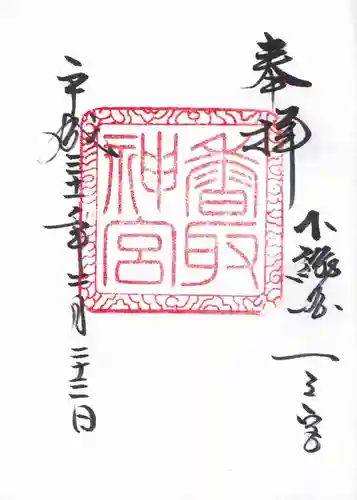 奉拝
下総国 一之宮
香取
神宮
平成三十一年 二月 二十二日